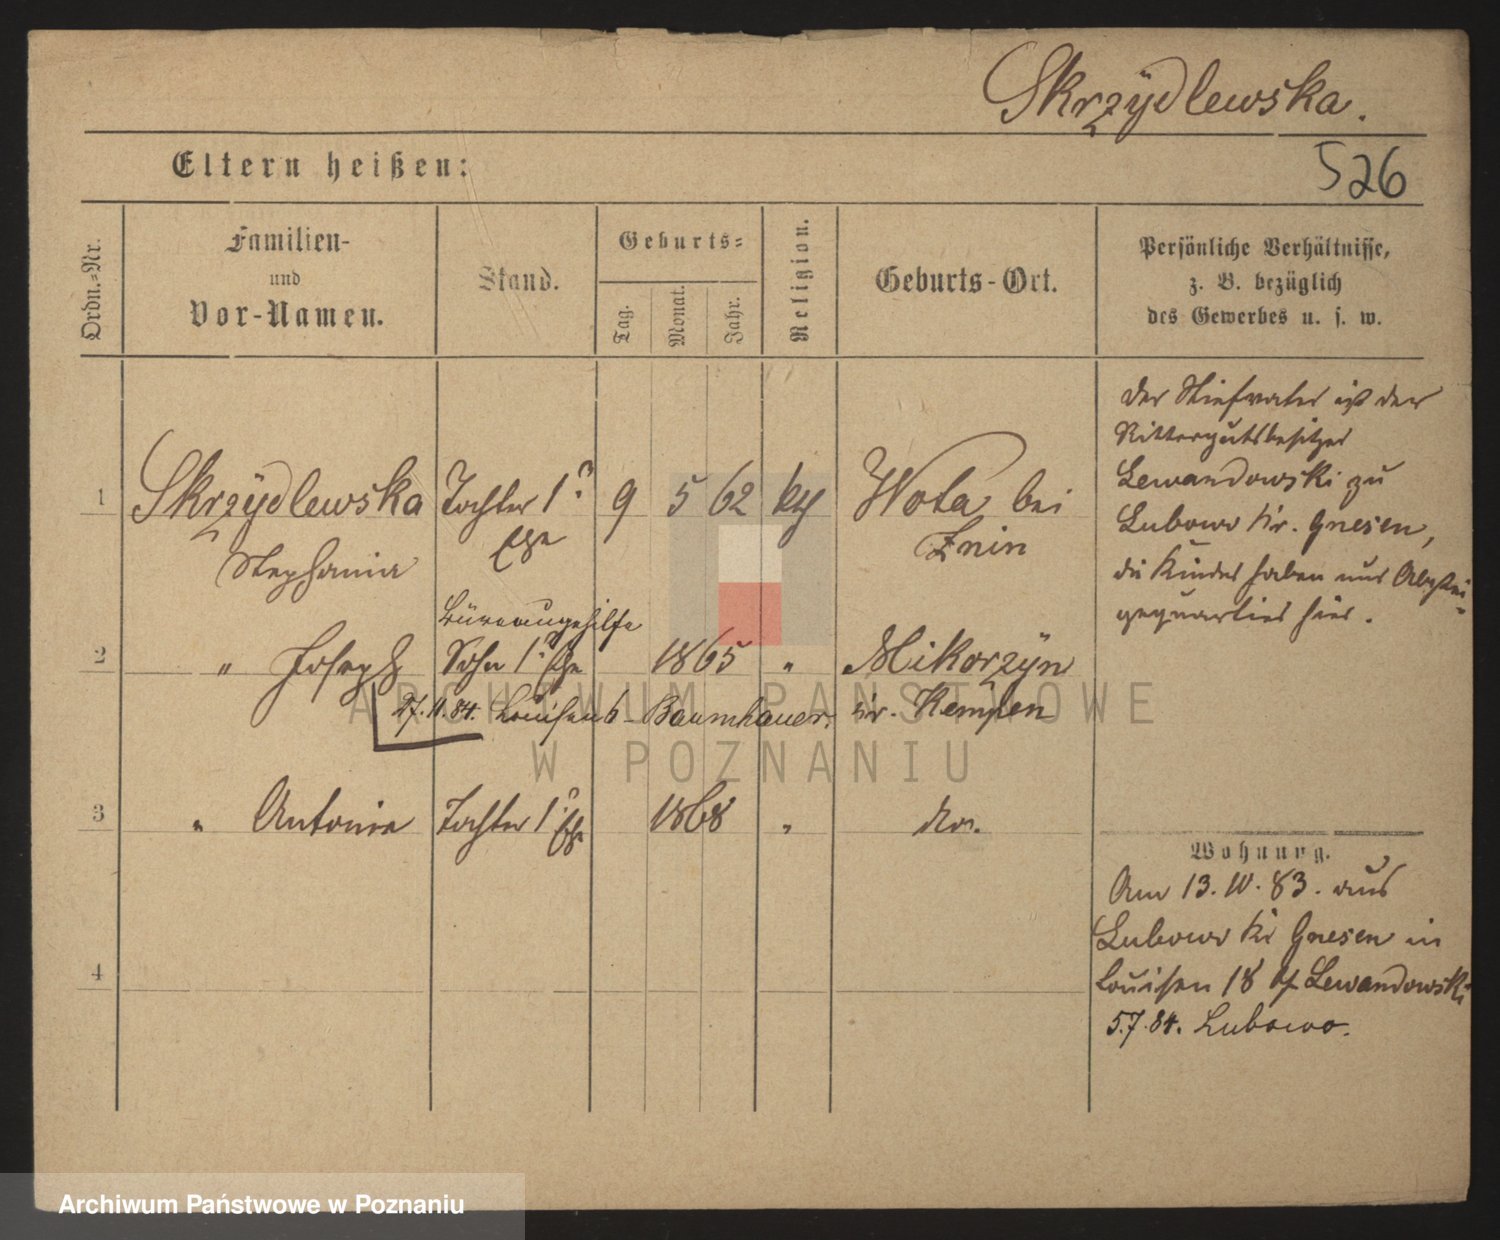 Skrzÿdlewska.
Eltern heißen:
526
Ordn.-Nr.
Familien-
und
Vor-Namen.
Stand.
Geburts-
Tag.
Monat.
Jahr.
Religion.
Geburts-Ort.
Persönliche Verhältnisse,
z. B. bezüglich
des Gewerbes u. s. w.
1
Skrzÿdlewska
Stephania
Tochter 1.
Ehe
9
5
62
Wola bei
Znin
Der Stiefvater ist der
Rittergutsbesitzer
Lewandowski zu
Lubowo Kr. Gnesen,
die Kinder haben nur Abstei-
gequartier hier.
2
" Joseph
Büreaugehilfe
Sohn 1. Ehe
1865
"
Mikorzÿn
Kr. Kempen
27.11.84. Louisen 6 - Baumhauer.
3
" Antonie
Tochter 1. Ehe
1868
"
do.
Wohnung.
Am 13. IV. 83. aus
Lubowo Kr Gnesen in
Louisen 18 Lewandowski
5.7.84. Lubowo.
4
ARCHIWUM PAŃSTWOWE
W POZNANIU
Archiwum Państwowe w Poznaniu